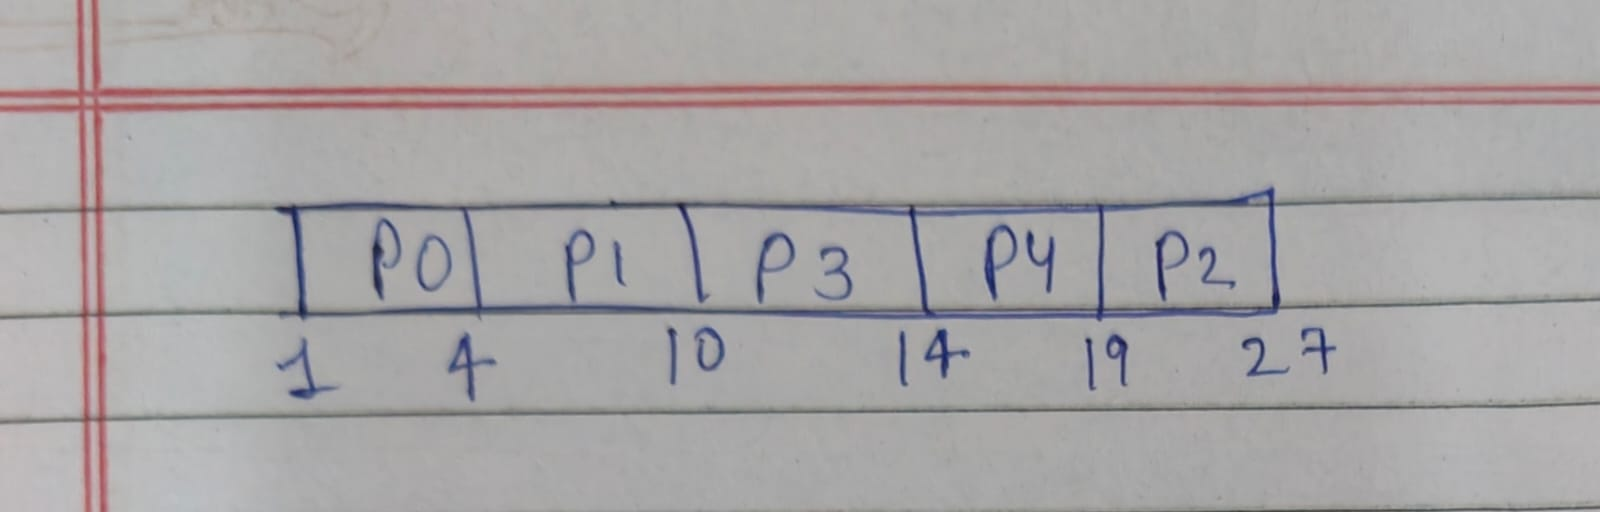 P0 P1 P3 P4 P2
1 4 10 14 19 27